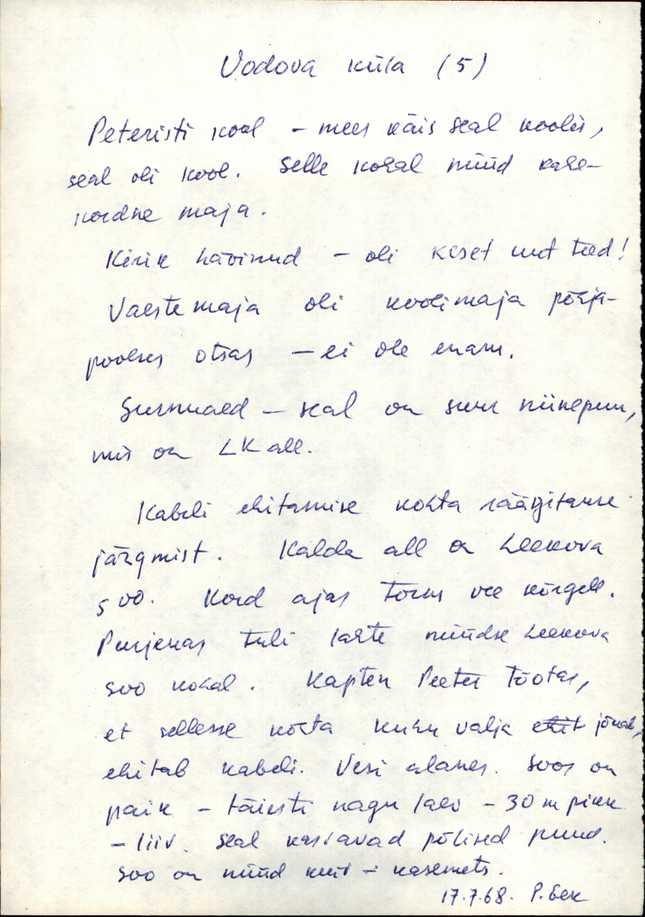 Vodova küla (5)
Peteristi kool – mees käis seal koolis,
seal oli kool. Selle kohal nüüd kahe-
kordne maja.
Kirik hävinud – oli keset uut teed!
Vaestemaja oli koolimaja põhja-
poolses otsas – ei ole enam.
Surnuaed – seal on suur niinepuu,
mis on LK all.
Kabeli ehitamise kohta räägitakse
järgmist. Kalda all on Leekova
soo. Kord ajas torm vee kõrgele.
Purjekas tuli lahte nüüdse Leekova
soo kohal. Kapten Peeter tõotas,
et sellesse kohta kuhu välja ehit jõuab,
ehitab kabeli. Vesi alanes. Soos on
paik – täiesti nagu laev – 30 m pikk
– liiv. Seal kasvavad põlised puud.
Soo on nüüd kuiv – kasemets.
17.7.68. P.